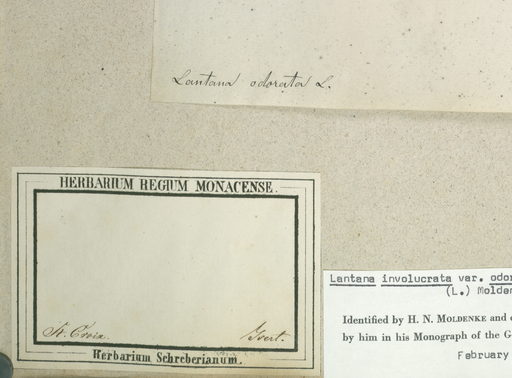 Lantana odorata L.
HERBARIUM REGIUM MONACENSE.
St. Croix.
Herbarium Schreberianum.
Lantana involucrata var. odor
(L.) Molden
Identified by H. N. MOLDENKE and
by him in his Monograph of the G
February